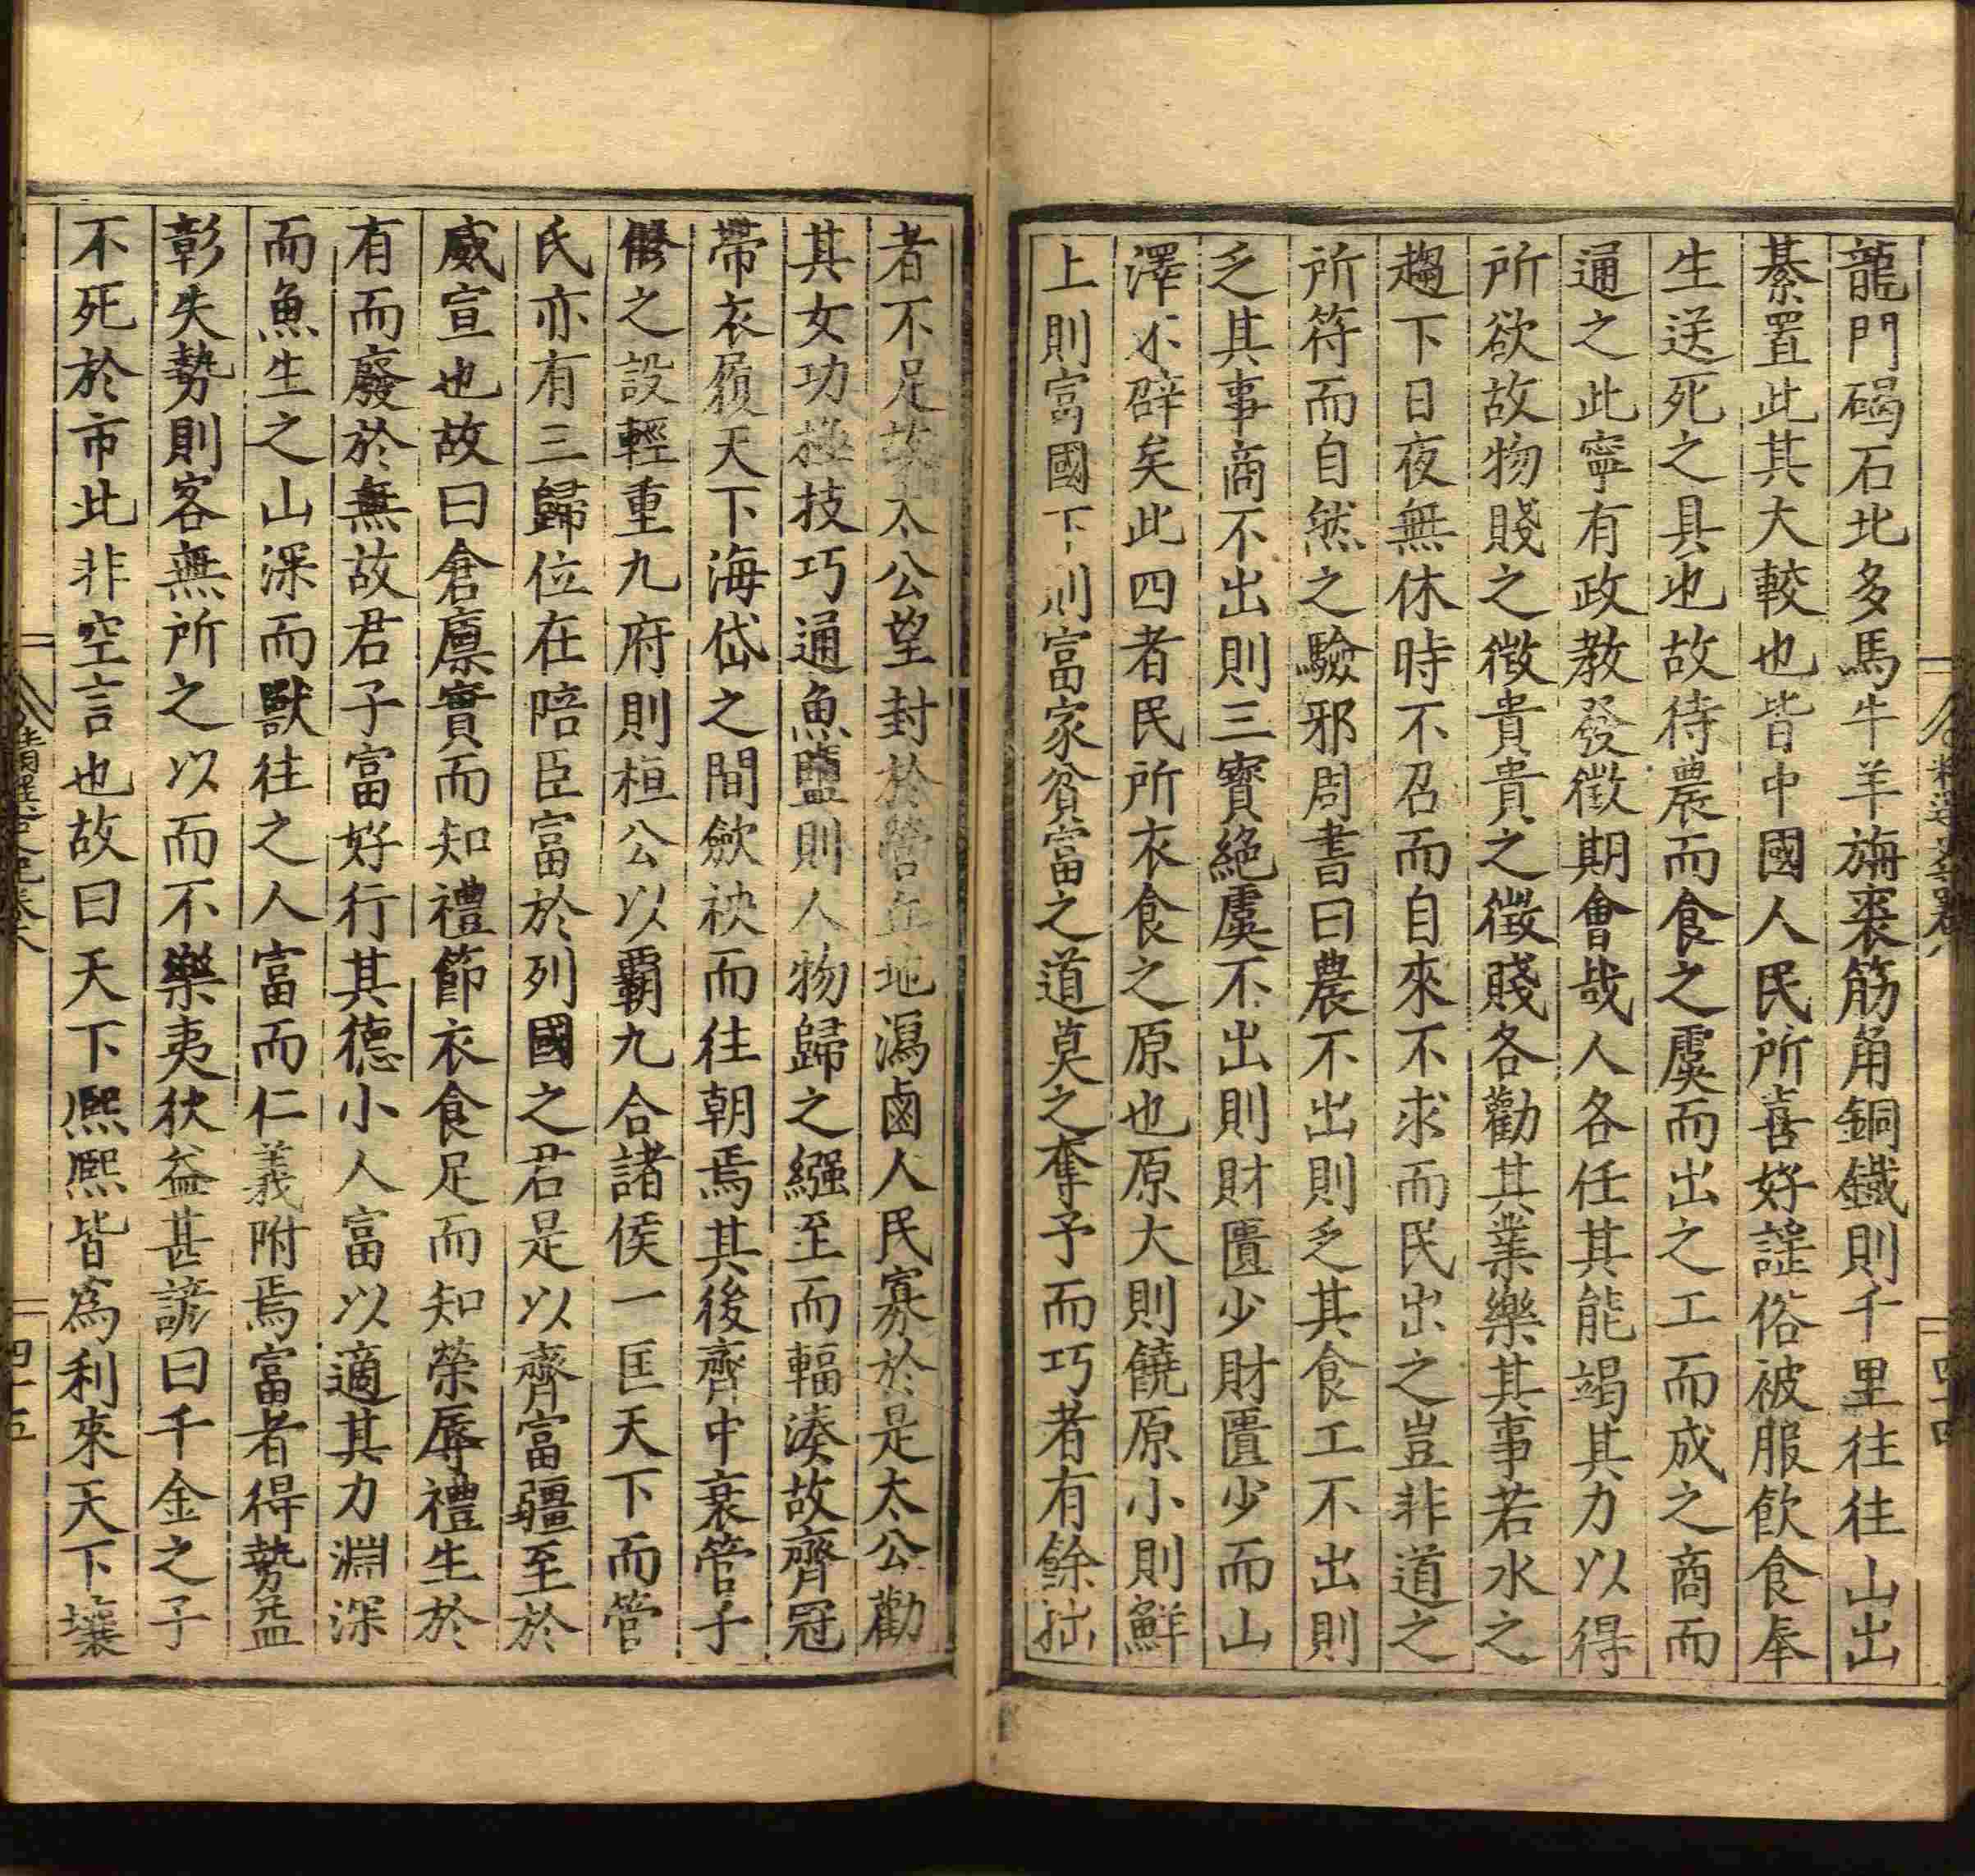 龍門碣石北多馬牛羊旃裘筋角銅鐵則千里往往山出
棊置此其大較也皆中國人民所喜好謡俗被服飲食奉
生送死之具也故待農而食之虞而出之工而成之商而
通之此寧有政教發徵期會哉人各任其能竭其力以得
所欲故物賤之徵貴貴之徵賤各勸其業樂其事若水之
趨下日夜無休時不召而自來不求而民出之豈非道之
所符而自然之驗邪周書曰農不出則乏其食工不出則
乏其事商不出則三寶絶虞不出則財匱少財匱少而山
澤不辟矣此四者民所衣食之原也原大則饒原小則鮮
上則富國下則富家貧富之道莫之奪予而巧者有餘拙
者不足故太公望封於營丘地潟鹵人民寡於是太公勸
其女功極技巧通魚鹽則人物歸之繦至而輻湊故齊冠
帶衣履天下海岱之間斂袂而往朝焉其後齊中衰管子
脩之設輕重九府則桓公以霸九合諸侯一匡天下而管
氏亦有三歸位在陪臣富於列國之君是以齊富彊至於
威宣也故曰倉廩實而知禮節衣食足而知榮辱禮生於
有而廢於無故君子富好行其德小人富以適其力淵深
而魚生之山深而獸往之人富而仁義附焉富者得勢益
彰失勢則客無所之以而不樂夷狄益甚諺曰千金之子
不死於市此非空言也故曰天下熙熙皆爲利來天下壤
精選史記卷八
四十五
四十四